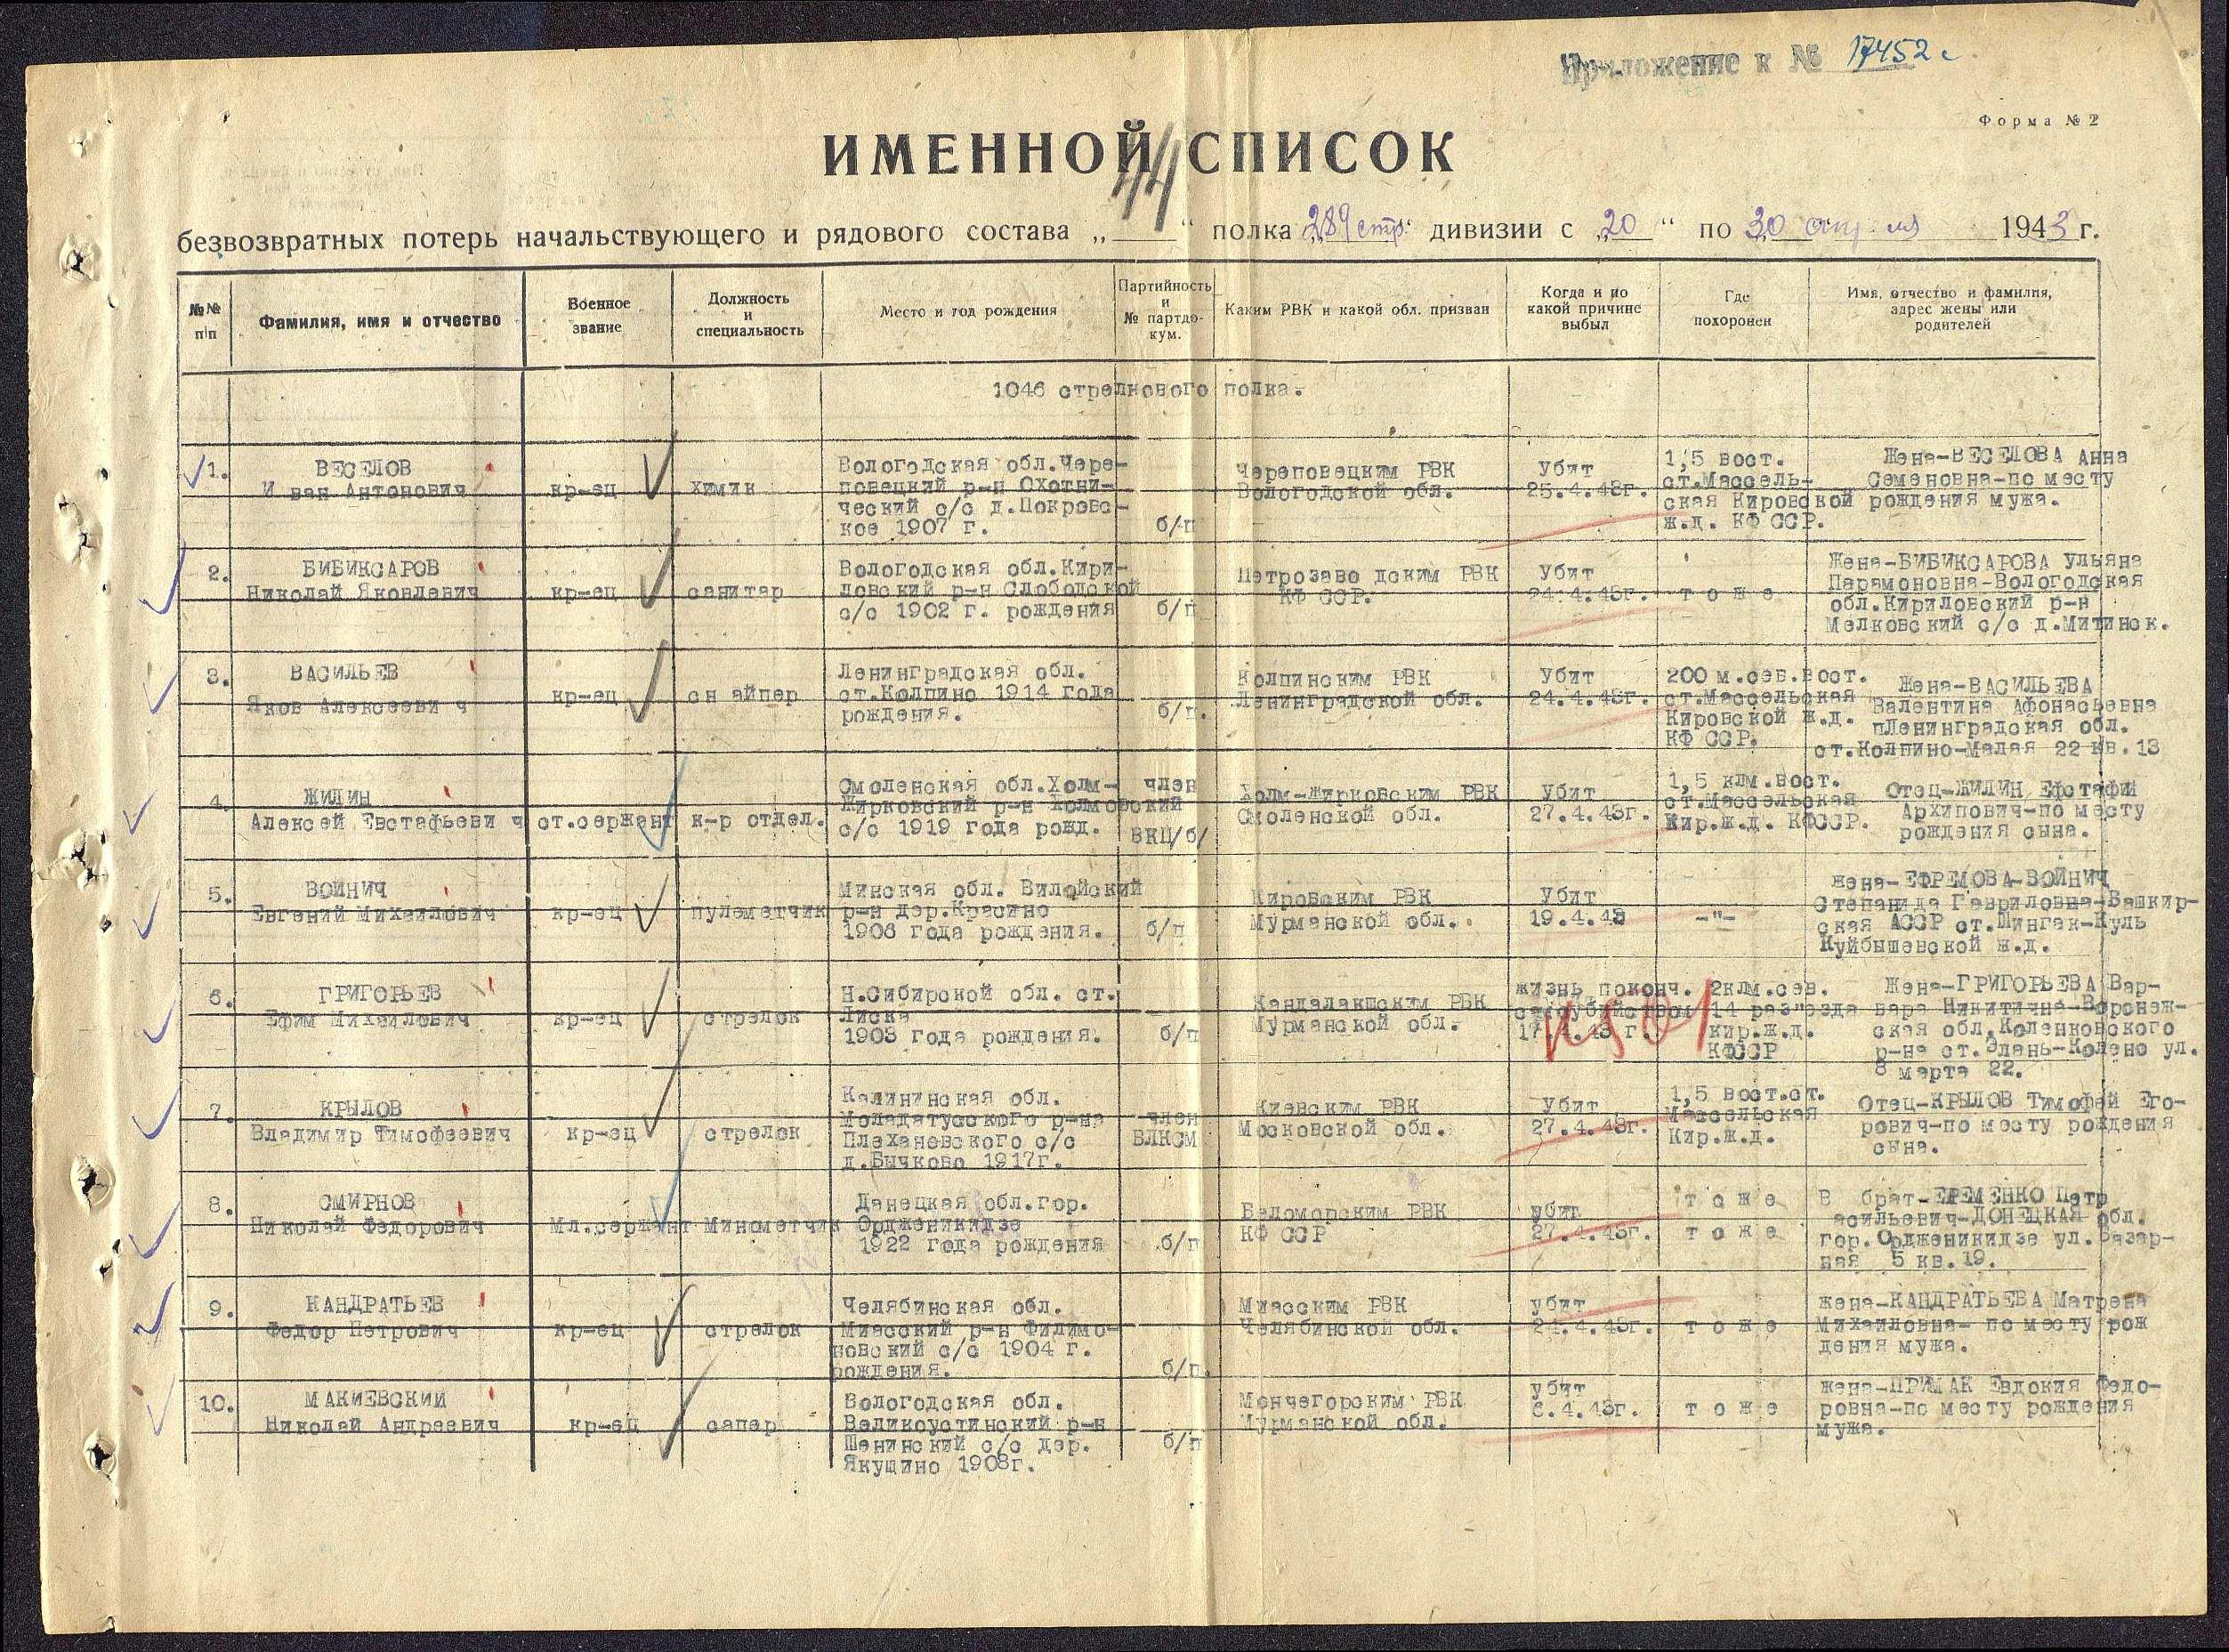 Приложение к № 17452с
Форма № 2
ИМЕННОЙ СПИСОК
44
безвозвратных потерь начальствующего и рядового состава „ “ полка „289 стр.“ дивизии с „20“ по 30 апреля 1943 г.
№№ п/п
Фамилия, имя и отчество
Военное звание
Должность и специальность
Место и год рождения
Партийность и № партдо-кум.
Каким РВК и какой обл. призван
Когда и по какой причине выбыл
Где похоронен
Имя, отчество и фамилия, адрес жены или родителей
1046 стрелкового полка.
1.
ВЕСЕЛОВ
И ван Антонович
кр-ец
химик
Вологодская обл.Чере-
повецкий р-н Охотни-
ческий с/с д.Покровс-
кое 1907 г.
б/п
Череповецким РВК
Вологодской обл.
Убит
25.4.43г.
1,5 вост.
ст.Массель-
ская Кировской
ж.д. КФ ССР.
Жена-ВЕСЕЛОВА Анна
Семеновна-по месту
рождения мужа.
2.
БИБИКСАРОВ
Николай Яковлевич
кр-ец
санитар
Вологодская обл.Кири-
ловский р-н Слободской
с/с 1902 г. рождения
б/п
Петрозаво дским РВК
КФ ССР.
Убит
24.4.43г.
т о ж е
Жена-БИБИКСАРОВА Ульяна
Парамоновна-Вологодская
обл.Кириловский р-н
Мелковский с/с д.Митинск.
3.
ВАСИЛЬЕВ
Яков Алексееви ч
кр-ец
сн айпер
Ленинградская обл.
ст.Колпино 1914 года
рождения.
б/п.
Колпинским РВК
Ленинградской обл.
Убит
24.4.43г.
200 м.сев.вост.
ст.Массельская
Кировской ж.д.
КФ ССР.
Жена-ВАСИЛЬЕВА
Валентина Афонасьевна
пЛенинградская обл.
ст.Колпино-Малая 22 кв.13
4.
ЖИЛИН
Алексей Евстафьеви ч
ст.сержант
к-р отдел.
Смоленская обл.Холм-
Жирковский р-н Холмовский
с/с 1919 года рожд.
член
ВКП/б/
Холм-Жирковским РВК
Смоленской обл.
Убит
27.4.43г.
1,5 клм.вост.
ст.Массельская
Кир.ж.д. КФССР.
Отец-ЖИЛИН Ефстафий
Архипович-по месту
рождения сына.
5.
ВОЙНИЧ
Евгений Михайлович
кр-ец
пулеметчик
Минская обл. Вилойский
р-н дер.Красино
1906 года рождения.
б/п
Кировским РВК
Мурманской обл.
Убит
19.4.43
-"-
жена-ЕФРЕМОВА-ВОЙНИЧ
Степанида Гавриловна-Башкир-
ская АССР ст.Шингак-Куль
Куйбышевской ж.д.
6.
ГРИГОРЬЕВ
Ефим Михайлович
кр-ец
стрелок
Н.Сибирской обл. ст.
Лиска
1903 года рождения.
б/п
Кандалакшским РВК
Мурманской обл.
жизнь поконч.
самоубийством
17.4.43 г.
2клм.сев.
14 раз"езда
кир.ж.д.
КФССР
Жена-ГРИГОРЬЕВА Вар-
вара Никитична-Воронеж-
ская обл.Коленковского
р-на ст.Элань-Колено ул.
8 марта 22.
7.
КРЫЛОВ
Владимир Тимофеевич
кр-ец
стрелок
Калининская обл.
Моладатусского р-на
Плехановского с/с
д.Бычково 1917г.
член
ВЛКСМ
Киевским РВК
Московской обл.
Убит
27.4.43г.
1,5 вост.ст.
Массельская
Кир.ж.д.
Отец-КРЫЛОВ Тимофей Его-
рович-по месту рождения
сына.
8.
СМИРНОВ
Николай Федорович
Мл.сержант
Минометчик
Данецкая обл.гор.
Ордженикидзе
1922 года рождения
б/п
Беломорским РВК
КФ ССР
убит
27.4.43г.
т о ж е
т о ж е
В брат-ЕРЕМЕНКО Петр
асильевич-ДОНЕЦКАЯ обл.
гор.Ордженикидзе ул.Базар-
ная 5 кв.19.
9.
КАНДРАТЬЕВ
Федор Петрович
кр-ец
стрелок
Челябинская обл.
Миасский р-н Филимо-
новский с/с 1904 г.
рождения.
б/п.
Миасским РВК
Челябинской обл.
убит
24.4.43г.
т о ж е
жена-КАНДРАТЬЕВА Матрена
Михайловна- по месту рож
дения мужа.
10.
МАКИЕВСКИЙ
Николай Андреевич
кр-ец
сапер
Вологодская обл.
Великоустинский р-н
Шенинский с/с дер.
Якушино 1908г.
б/п
Мончегорским РВК
Мурманской обл.
убит
6.4.43г.
т о ж е
жена-ПРИМАК Евдокия Федо-
ровна-по месту рождения
мужа.